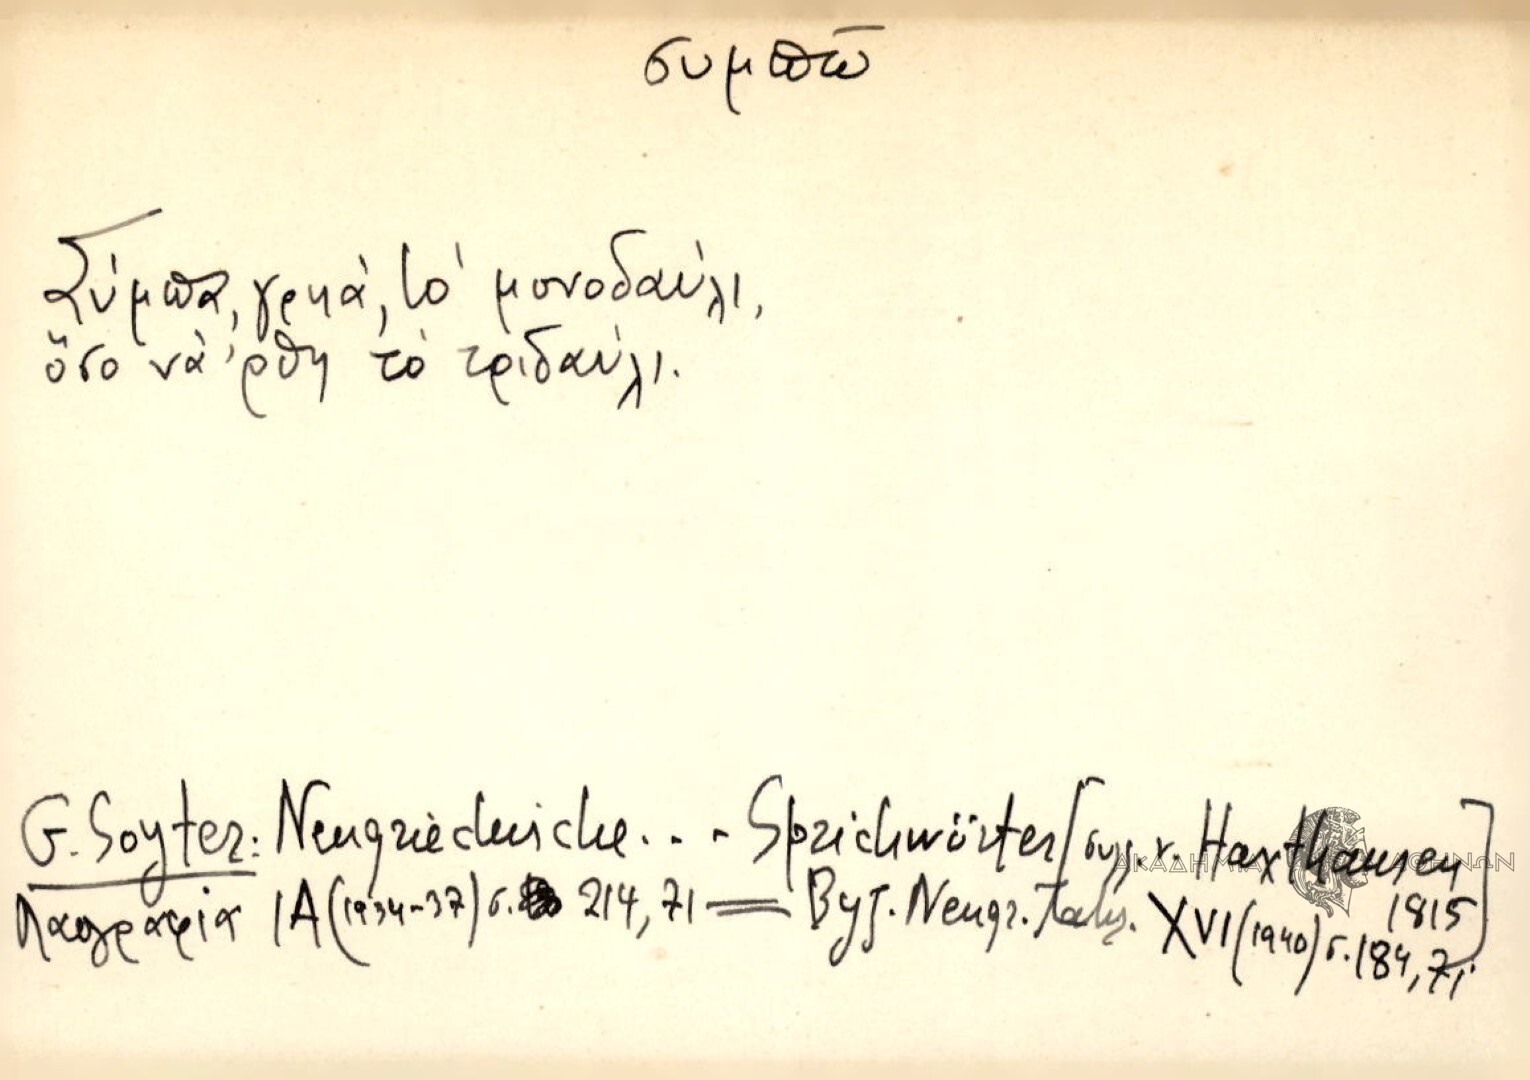 συμπῶ
Σύμπα, γρηά, τὸ μονοδαύλι,
ὅσο νὰ 'ρθῆ τὸ τριδαύλι.
G. Soyter: Neugriechische... Sprichwörter [συλλ. v. Haxthausen
1815]
Λαογραφία ΙΑ (1934-37) σ. 214, 71 = Byz. Neugr. Jahrb. XVI (1940) σ. 184, 71
ΑΚΑΔΗΜΙΑ ΑΘΗΝΩΝ